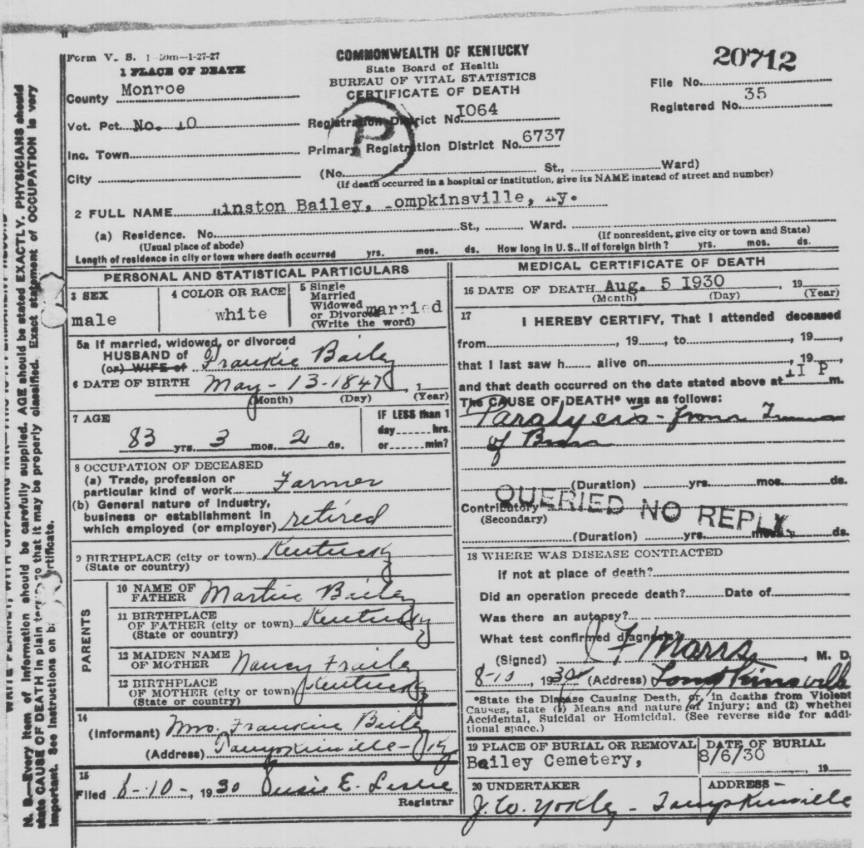 Form V. S. 1-50m-1-27-27
COMMONWEALTH OF KENTUCKY
State Board of Health
BUREAU OF VITAL STATISTICS
CERTIFICATE OF DEATH
20712
File No.
Registered No. 35
1 PLACE OF DEATH
County Monroe
Vot. Pct. No. 10
Registration District No. 1064
P
Inc. Town
Primary Registration District No. 6737
City
(No. St., Ward)
(If death occurred in a hospital or institution, give its NAME instead of street and number)
2 FULL NAME inston Bailey, ompkinsville, y.
(a) Residence. No. St., Ward.
(Usual place of abode) (If nonresident, give city or town and State)
Length of residence in city or town where death occurred yrs. mos. ds. How long in U. S., if of foreign birth? yrs. mos. ds.
PERSONAL AND STATISTICAL PARTICULARS
3 SEX
male
4 COLOR OR RACE
white
5 Single
Married
Widowed
or Divorced married
(Write the word)
5a If married, widowed, or divorced
HUSBAND of Frankie Baily
(or) WIFE of
6 DATE OF BIRTH May - 13 - 1847, 1
(Month) (Day) (Year)
7 AGE
83 yrs. 3 mos. 2 ds.
IF LESS than 1
day hrs.
or min?
8 OCCUPATION OF DECEASED
(a) Trade, profession or
particular kind of work Farmer
(b) General nature of industry,
business or establishment in
which employed (or employer) retired
9 BIRTHPLACE (city or town) Kentucky
(State or country)
PARENTS
10 NAME OF
FATHER Martin Bailey
11 BIRTHPLACE
OF FATHER (city or town) Kentucky
(State or country)
12 MAIDEN NAME
OF MOTHER Nancy
13 BIRTHPLACE
OF MOTHER (city or town) Kentucky
(State or country)
14
(Informant) Mrs. Frankie Baily
(Address) Tompkinsville - Ky
15
Filed 8-10-, 1930 Susie E. Leslie
Registrar
MEDICAL CERTIFICATE OF DEATH
16 DATE OF DEATH Aug. 5 1930, 19
(Month) (Day) (Year)
17
I HEREBY CERTIFY, That I attended deceased
from , 19 , to , 19 ,
that I last saw h alive on , 19 ,
and that death occurred on the date stated above at P m.
The CAUSE OF DEATH* was as follows:
Paralyers - from
of
(Duration) yrs. mos. ds.
Contributory
(Secondary)
QUERIED NO REPLY
(Duration) yrs. mos. ds.
18 WHERE WAS DISEASE CONTRACTED
If not at place of death?
Did an operation precede death? Date of
Was there an autopsy?
What test confirmed diagnosis?
(Signed) J F Marrs, M. D.
8-10, 1930 (Address) Tompkinsville
*State the Disease Causing Death, or, in deaths from Violent
Causes, state (1) Means and nature of Injury; and (2) whether
Accidental, Suicidal or Homicidal. (See reverse side for addi-
tional space.)
19 PLACE OF BURIAL OR REMOVAL
Bailey Cemetery,
DATE OF BURIAL
8/6/30 19
20 UNDERTAKER
J. W. Yokly -
ADDRESS
Tompkinsville
N. B.—Every item of information should be carefully supplied. AGE should be stated EXACTLY. PHYSICIANS should
state CAUSE OF DEATH in plain terms so that it may be properly classified. Exact statement of OCCUPATION is very
important. See instructions on back of certificate.